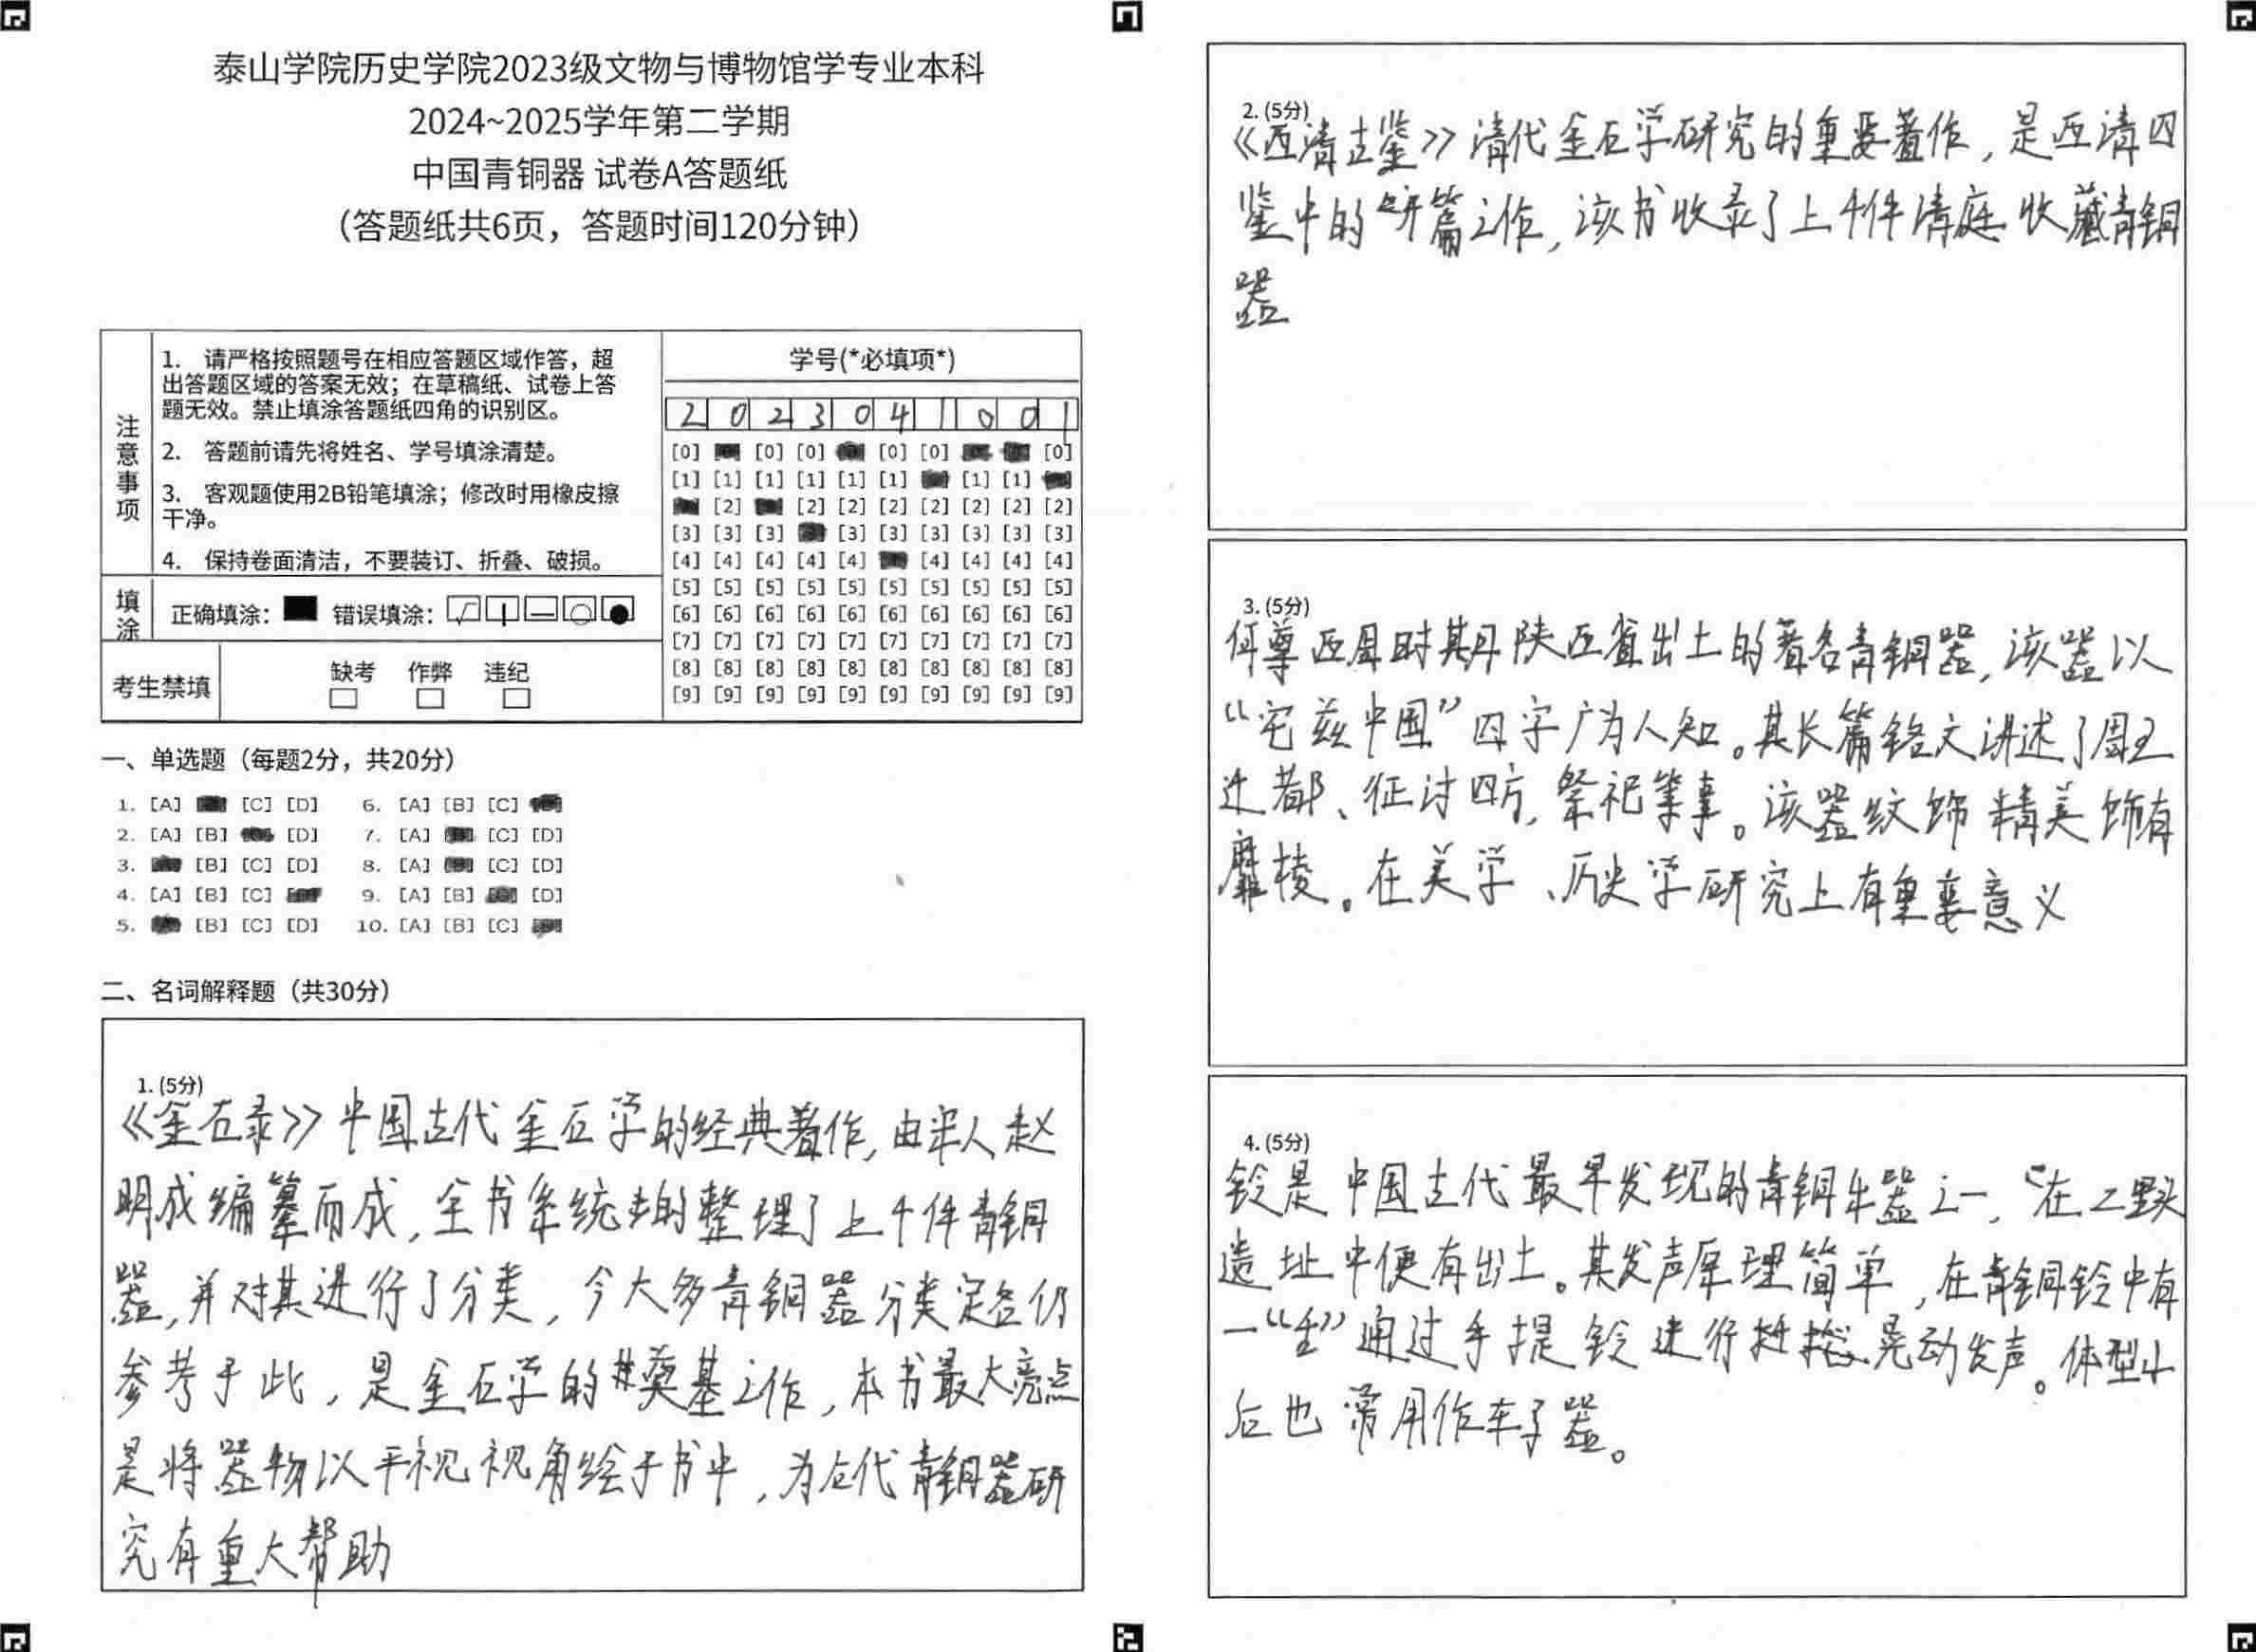 泰山学院历史学院2023级文物与博物馆学专业本科
2024~2025学年第二学期
中国青铜器 试卷A答题纸
（答题纸共6页，答题时间120分钟）
注意事项
1. 请严格按照题号在相应答题区域作答，超
出答题区域的答案无效；在草稿纸、试卷上答
题无效。禁止填涂答题纸四角的识别区。
2. 答题前请先将姓名、学号填涂清楚。
3. 客观题使用2B铅笔填涂；修改时用橡皮擦
干净。
4. 保持卷面清洁，不要装订、折叠、破损。
填涂
正确填涂： 错误填涂：
考生禁填
缺考 作弊 违纪
学号(*必填项*)
2 0 2 3 0 4 1 0 0 1
[0] [0] [0] [0] [0] [0]
[1] [1] [1] [1] [1] [1] [1] [1]
[2] [2] [2] [2] [2] [2] [2] [2]
[3] [3] [3] [3] [3] [3] [3] [3] [3]
[4] [4] [4] [4] [4] [4] [4] [4] [4]
[5] [5] [5] [5] [5] [5] [5] [5] [5] [5]
[6] [6] [6] [6] [6] [6] [6] [6] [6] [6]
[7] [7] [7] [7] [7] [7] [7] [7] [7] [7]
[8] [8] [8] [8] [8] [8] [8] [8] [8] [8]
[9] [9] [9] [9] [9] [9] [9] [9] [9] [9]
一、单选题（每题2分，共20分）
1. [A] [C] [D] 6. [A] [B] [C]
2. [A] [B] [D] 7. [A] [C] [D]
3. [B] [C] [D] 8. [A] [C] [D]
4. [A] [B] [C] 9. [A] [B] [D]
5. [B] [C] [D] 10. [A] [B] [C]
二、名词解释题（共30分）
1. (5分)
《金石录》中国古代金石学的经典著作，由宋人赵
明成编纂而成，全书系统的整理了上千件青铜
器，并对其进行了分类，今大多青铜器分类定名仍
参考于此，是金石学的奠基之作，本书最大亮点
是将器物以平视视角绘于书中，为后代青铜器研
究有重大帮助
2. (5分)
《西清古鉴》清代金石学研究的重要著作，是西清四
鉴中的开篇之作，该书收录了上千件清庭收藏青铜
器
3. (5分)
何尊西周时期陕西省出土的著名青铜器，该器以
“宅兹中国”四字广为人知。其长篇铭文讲述了周王
迁都、征讨四方，祭祀等事。该器纹饰精美饰有
扉棱。在美学、历史学研究上有重要意义
4. (5分)
铃是中国古代最早发现的青铜乐器之一，在二里头
遗址中便有出土。其发声原理简单，在青铜铃中有
一“舌”通过手提铃进行摇晃动发声。体型小
后也常用作车器。